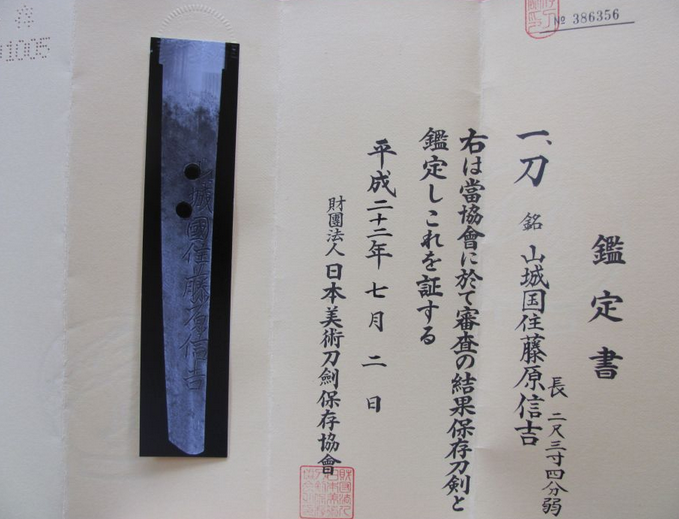 № 386356
鑑定書
一、刀 銘 山城国住藤原信吉
長 二尺三寸四分弱
右は當協會に於て審査の結果保存刀剣と
鑑定しこれを証する
平成二十二年七月二日
財團法人日本美術刀劍保存協會
城國住藤原信吉
1005